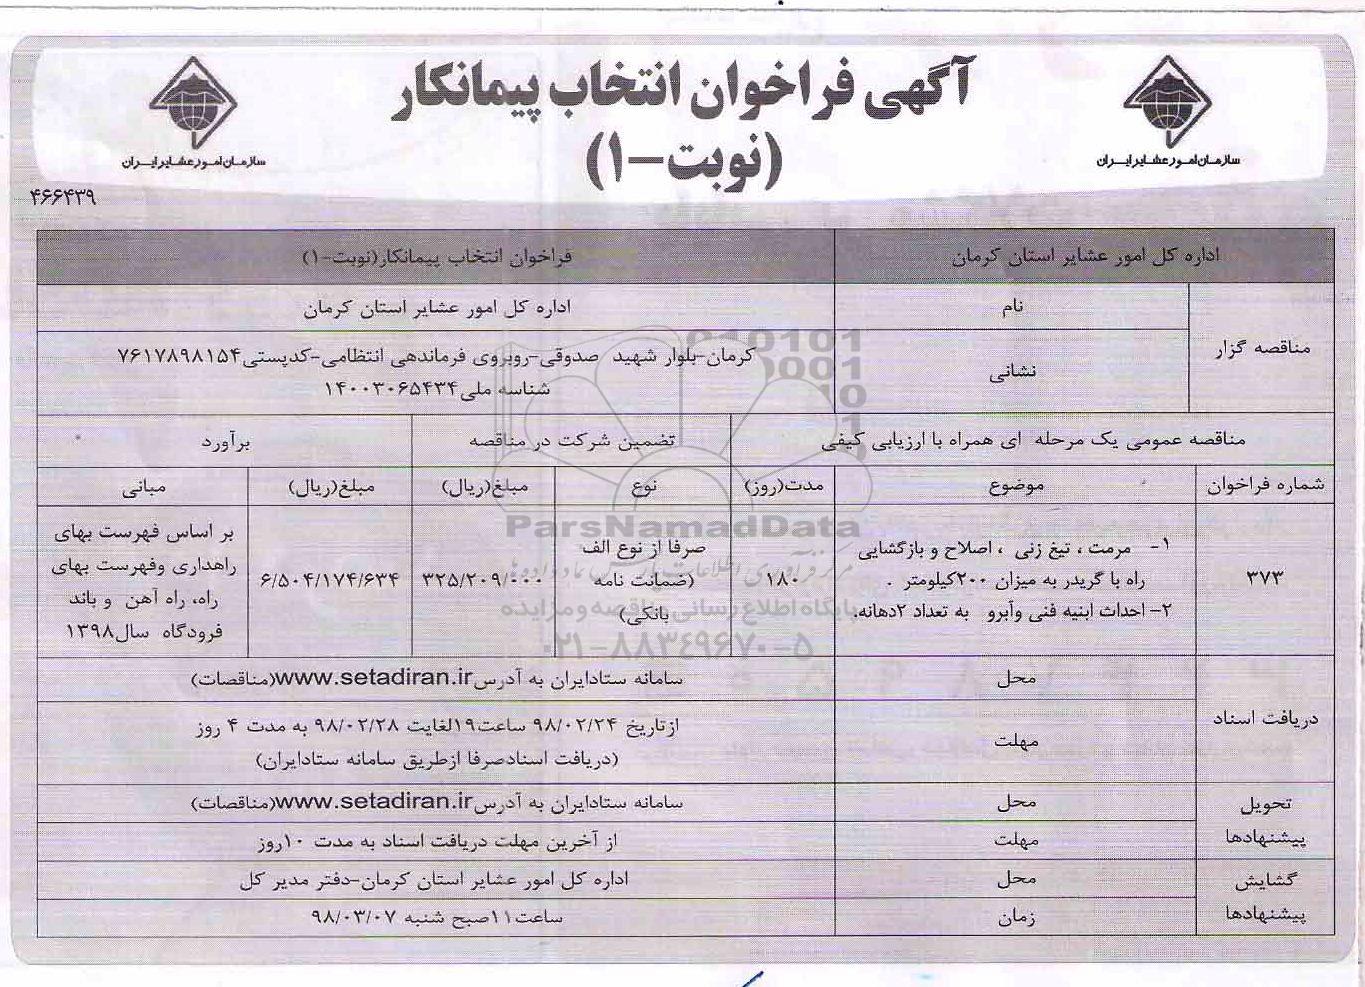 آگهی فراخوان انتخاب پیمانکار
(نوبت-۱)
سازمان امور عشایر ایران
سازمان امور عشایر ایران
۴۶۶۴۳۹
اداره کل امور عشایر استان کرمان
فراخوان انتخاب پیمانکار(نوبت-۱)
مناقصه گزار
نام
اداره کل امور عشایر استان کرمان
نشانی
کرمان-بلوار شهید صدوقی-روبروی فرماندهی انتظامی-کدپستی۷۶۱۷۸۹۸۱۵۴
شناسه ملی۱۴۰۰۳۰۶۵۴۳۴
مناقصه عمومی یک مرحله ای همراه با ارزیابی کیفی
تضمین شرکت در مناقصه
برآورد
شماره فراخوان
موضوع
مدت(روز)
نوع
مبلغ(ریال)
مبلغ(ریال)
مبانی
۳۷۳
۱- مرمت ، تیغ زنی ، اصلاح و بازگشایی
راه با گریدر به میزان ۲۰۰کیلومتر .
۲- احداث ابنیه فنی وآبرو به تعداد ۲دهانه.
۱۸۰
صرفا از نوع الف
(ضمانت نامه
بانکی)
۳۲۵/۲۰۹/۰۰۰
۶/۵۰۴/۱۷۴/۶۳۴
بر اساس فهرست بهای
راهداری وفهرست بهای
راه، راه آهن و باند
فرودگاه سال۱۳۹۸
دریافت اسناد
محل
سامانه ستادایران به آدرسwww.setadiran.ir(مناقصات)
مهلت
ازتاریخ ۹۸/۰۲/۲۴ ساعت۱۹لغایت ۹۸/۰۲/۲۸ به مدت ۴ روز
(دریافت اسنادصرفا ازطریق سامانه ستادایران)
تحویل
پیشنهادها
محل
سامانه ستادایران به آدرسwww.setadiran.ir(مناقصات)
مهلت
از آخرین مهلت دریافت اسناد به مدت ۱۰روز
گشایش
پیشنهادها
محل
اداره کل امور عشایر استان کرمان-دفتر مدیر کل
زمان
ساعت۱۱صبح شنبه ۹۸/۰۳/۰۷
ParsNamadData
پایگاه اطلاع رسانی مناقصه و مزایده
۰۲۱-۸۸۳۴۹۶۷۰-۵